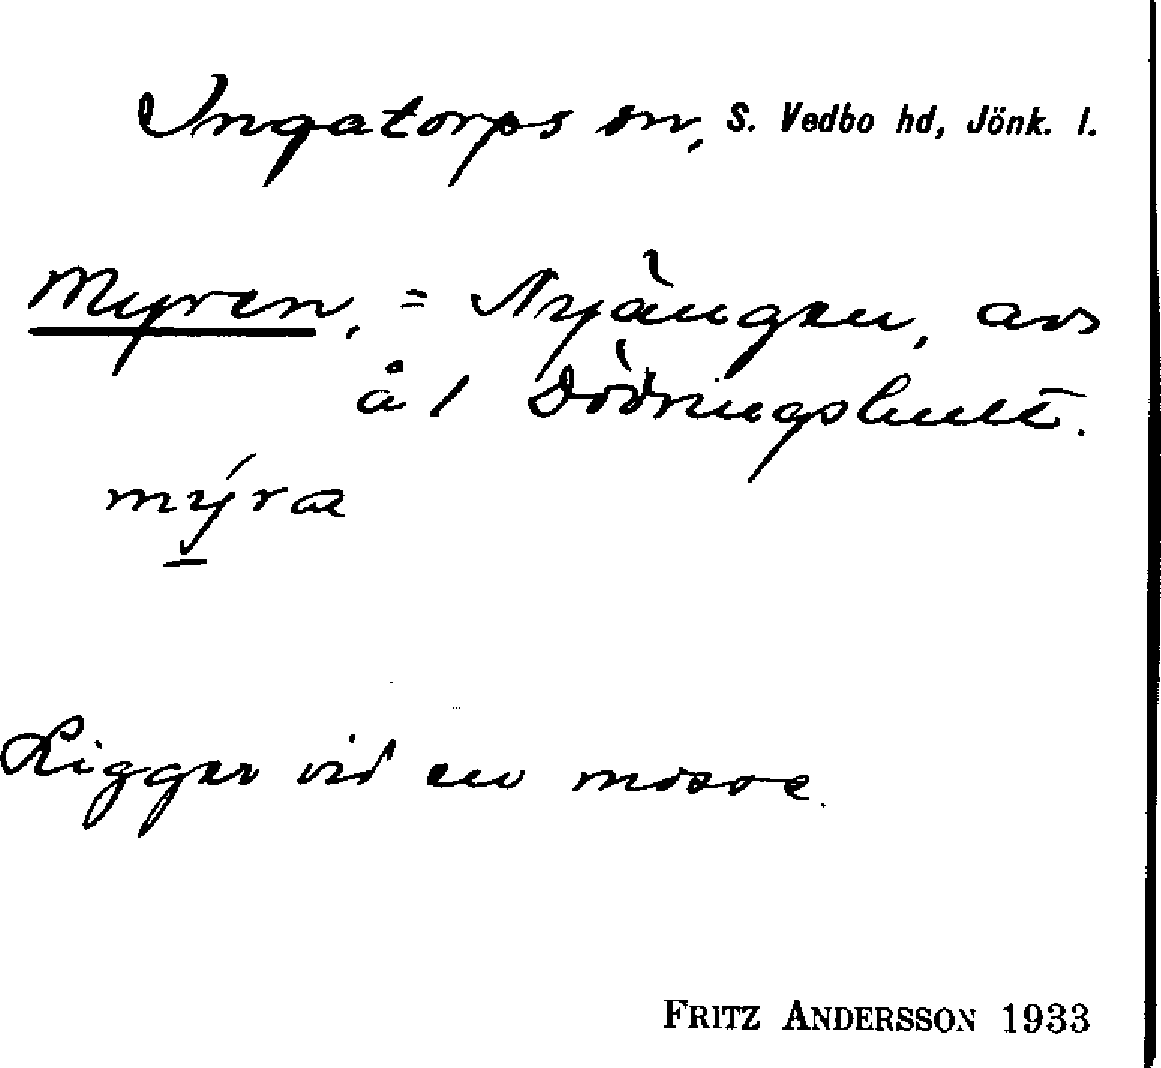 Ingatorps sn, S. Vedbo hd, Jönk. l.
Myren, = Nyängen, avs
å 1 Dödringshult.
mýra
Ligger vid en mosse.
FRITZ ANDERSSON 1933